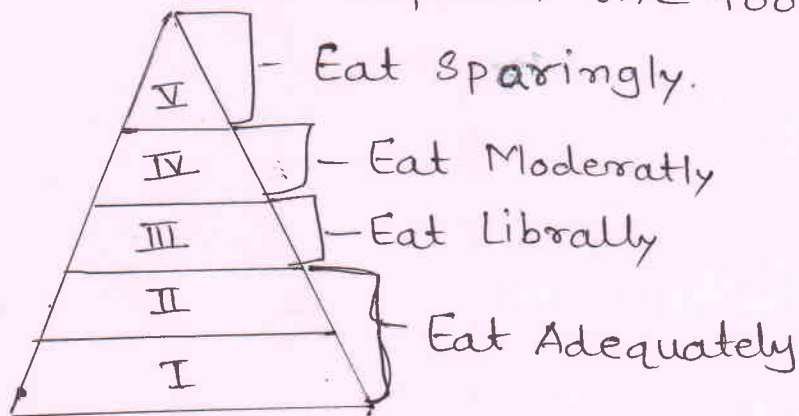 V - Eat Sparingly.
IV - Eat Moderatly
III - Eat Librally
II
Eat Adequately
I